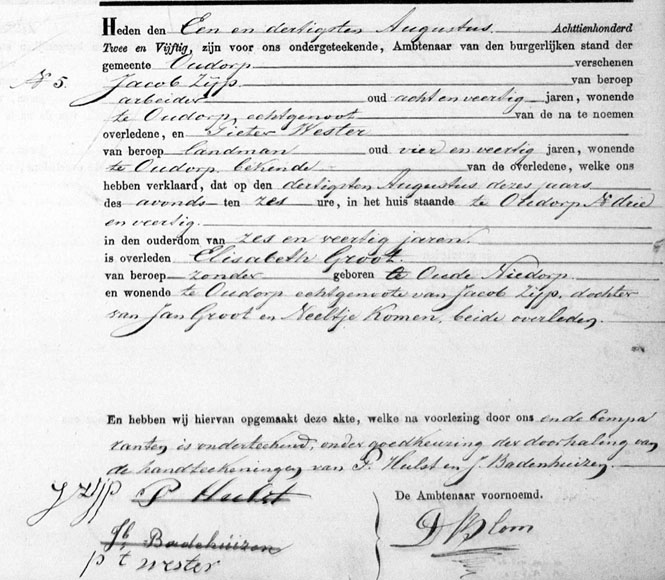 Heden den Een en dertigsten Augustus Achttienhonderd
Twee en Vijftig, zijn voor ons ondergeteekende, Ambtenaar van den burgerlijken stand der
gemeente Oudorp verschenen
No 5. Jacob Zijp van beroep
arbeider oud acht en veertig jaren, wonende
te Oudorp, echtgenoot van de na te noemen
overledene, en Pieter Wester
van beroep landman oud vier en veertig jaren, wonende
te Oudorp, bekende van de overledene, welke ons
hebben verklaard, dat op den dertigsten Augustus dezes jaars
des avonds ten zes ure, in het huis staande te Oudorp N drie
en veertig.
in den ouderdom van zes en veertig jaren.
is overleden Elisabeth Groot.
van beroep zonder geboren te Oude Niedorp
en wonende te Oudorp echtgenoote van Jacob Zijp, dochter
van Jan Groot en Neeltje Komen, beide overleden.
En hebben wij hiervan opgemaakt deze akte, welke na voorlezing door ons en de Compa
ranten is onderteekend, onder goedkeuring der doorhaling van
de handteekeningen van P. Hulst en J. Badenhuizen.
J Zijp P Hulst
De Ambtenaar voornoemd.
Jb Badehuizen
D Blom
p t wester